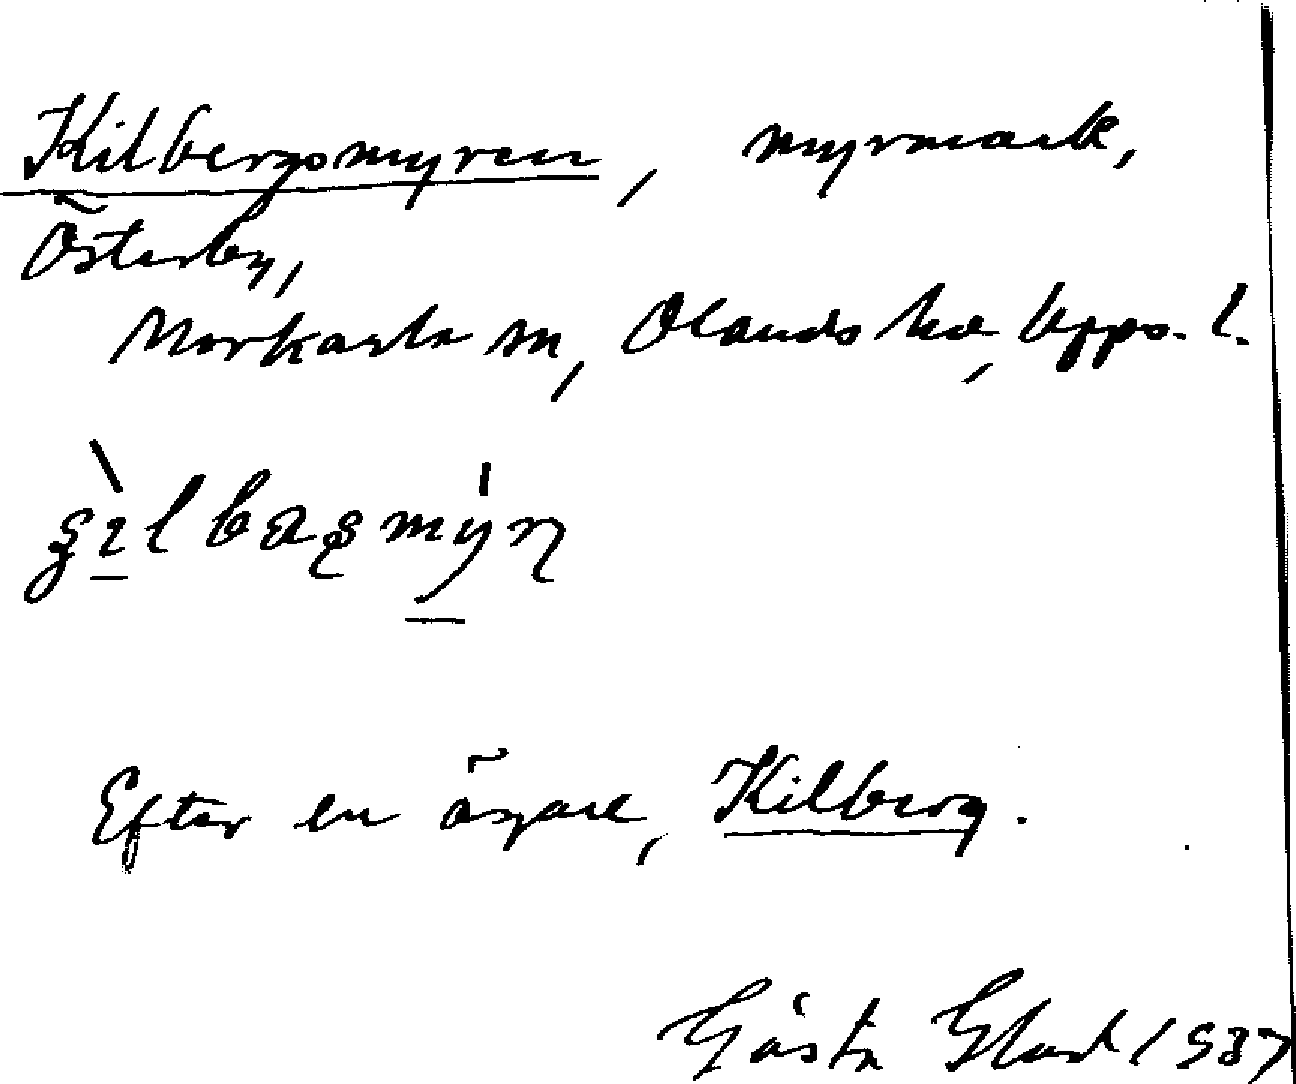 Kilbergsmyren, myrmark,
Österby,
Morkarla sn, Olands hd, Upps. l.
Efter en ägare, Kilberg.
Gösta 1937